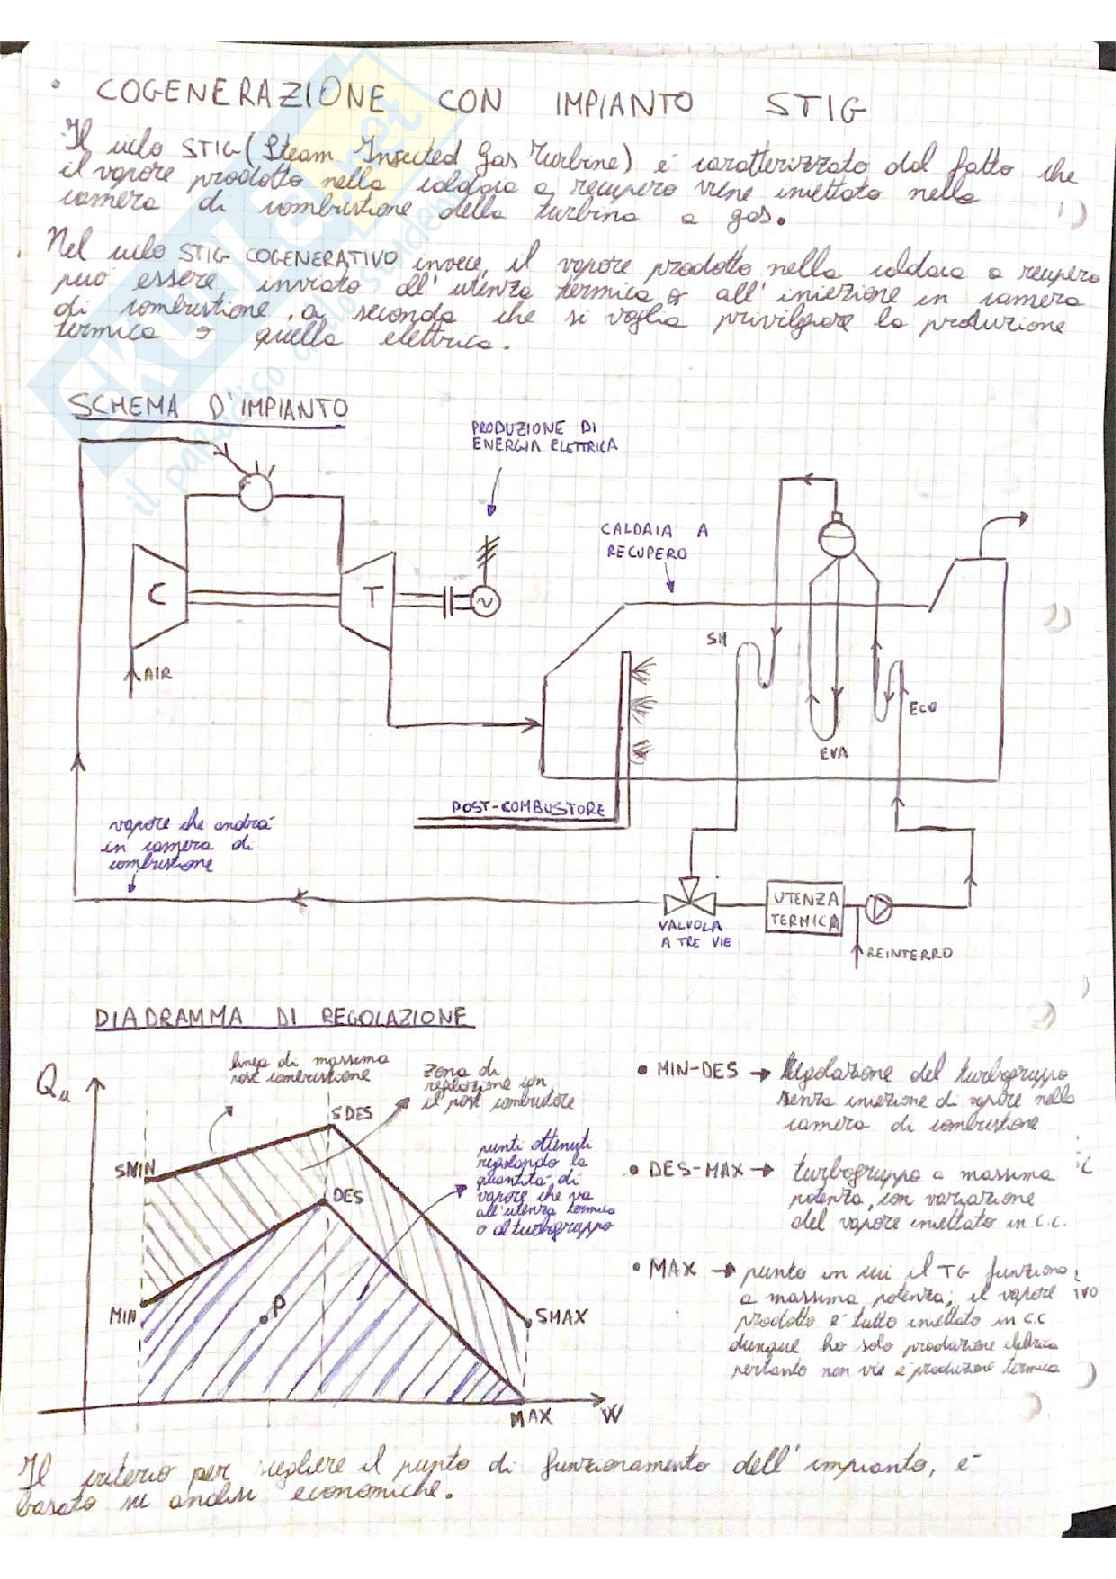 • COGENERAZIONE CON IMPIANTO STIG
Il ciclo STIG (Steam Injected Gas Turbine) è caratterizzato dal fatto che
il vapore prodotto nella caldaia a recupero viene iniettato nella
camera di combustione della turbina a gas.
Nel ciclo STIG COGENERATIVO invece, il vapore prodotto nella caldaia a recupero
può essere inviato all'utenza termica o all'iniezione in camera
di combustione, a seconda che si voglia privilegiare la produzione
termica o quella elettrica.
SCHEMA D'IMPIANTO
PRODUZIONE DI
ENERGIA ELETTRICA
CALDAIA A
RECUPERO
C
T
~
AIR
SH
EVA
ECO
POST-COMBUSTORE
vapore che andrà
in camera di
combustione
VALVOLA
A TRE VIE
UTENZA
TERMICA
REINTERRO
DIADRAMMA DI REGOLAZIONE
Qu
linea di massima
post combustione
zona di
regolazione con
il post combustore
SMIN
SDES
DES
MIN
P
SMAX
MAX
W
punti ottenuti
regolando la
quantità di
vapore che va
all'utenza termica
o al turbogruppo
• MIN-DES → Regolazione del turbogruppo
senza iniezione di vapore nella
camera di combustione
• DES-MAX → turbogruppo a massima
potenza, con variazione
del vapore iniettato in c.c.
• MAX → punto in cui il TG funziona
a massima potenza; il vapore
prodotto è tutto iniettato in c.c
dunque ho solo produzione elettrica
pertanto non vi è produzione termica
Il criterio per scegliere il punto di funzionamento dell'impianto, è
basato su analisi economiche.
SKUOLA.net
il paradiso dello studente